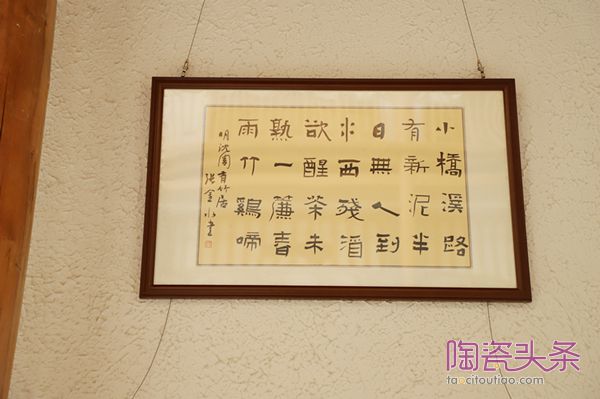 小橋溪路
有新泥半
日無人到
水西殘酒
欲醒茶未
熟一簾春
雨竹鷄啼
明沈周有竹居
張金水書
陶瓷头条
taocitoutiao.com